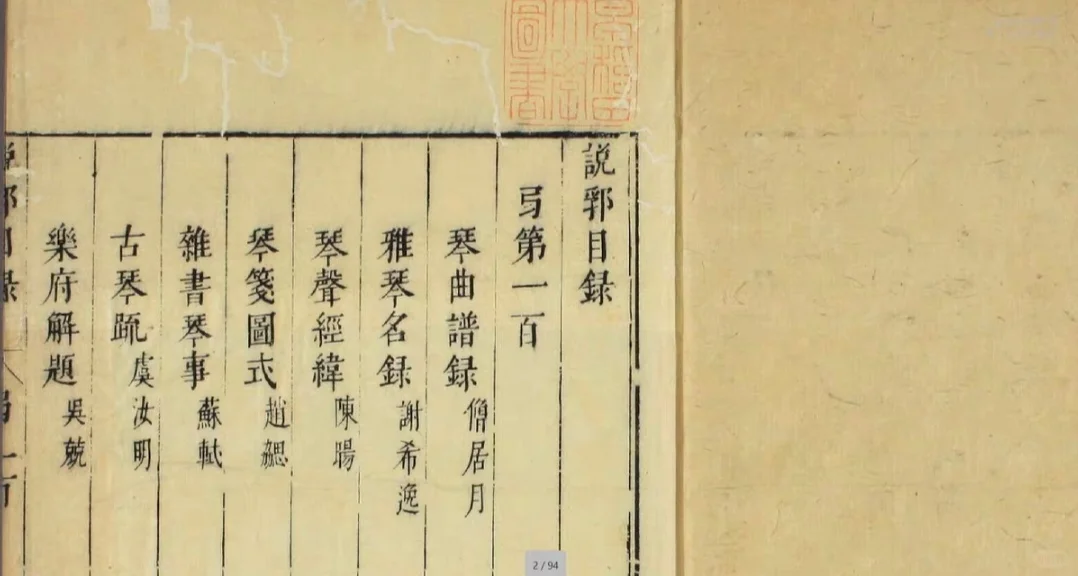 大學
圖書
說郛目録
弓第一百
琴曲譜録 僧居月
雅琴名録 謝希逸
琴聲經緯 陳暘
琴箋圖式 趙勰
雜書琴事 蘇軾
古琴疏 虞汝明
樂府解題 吳兢
2 / 94